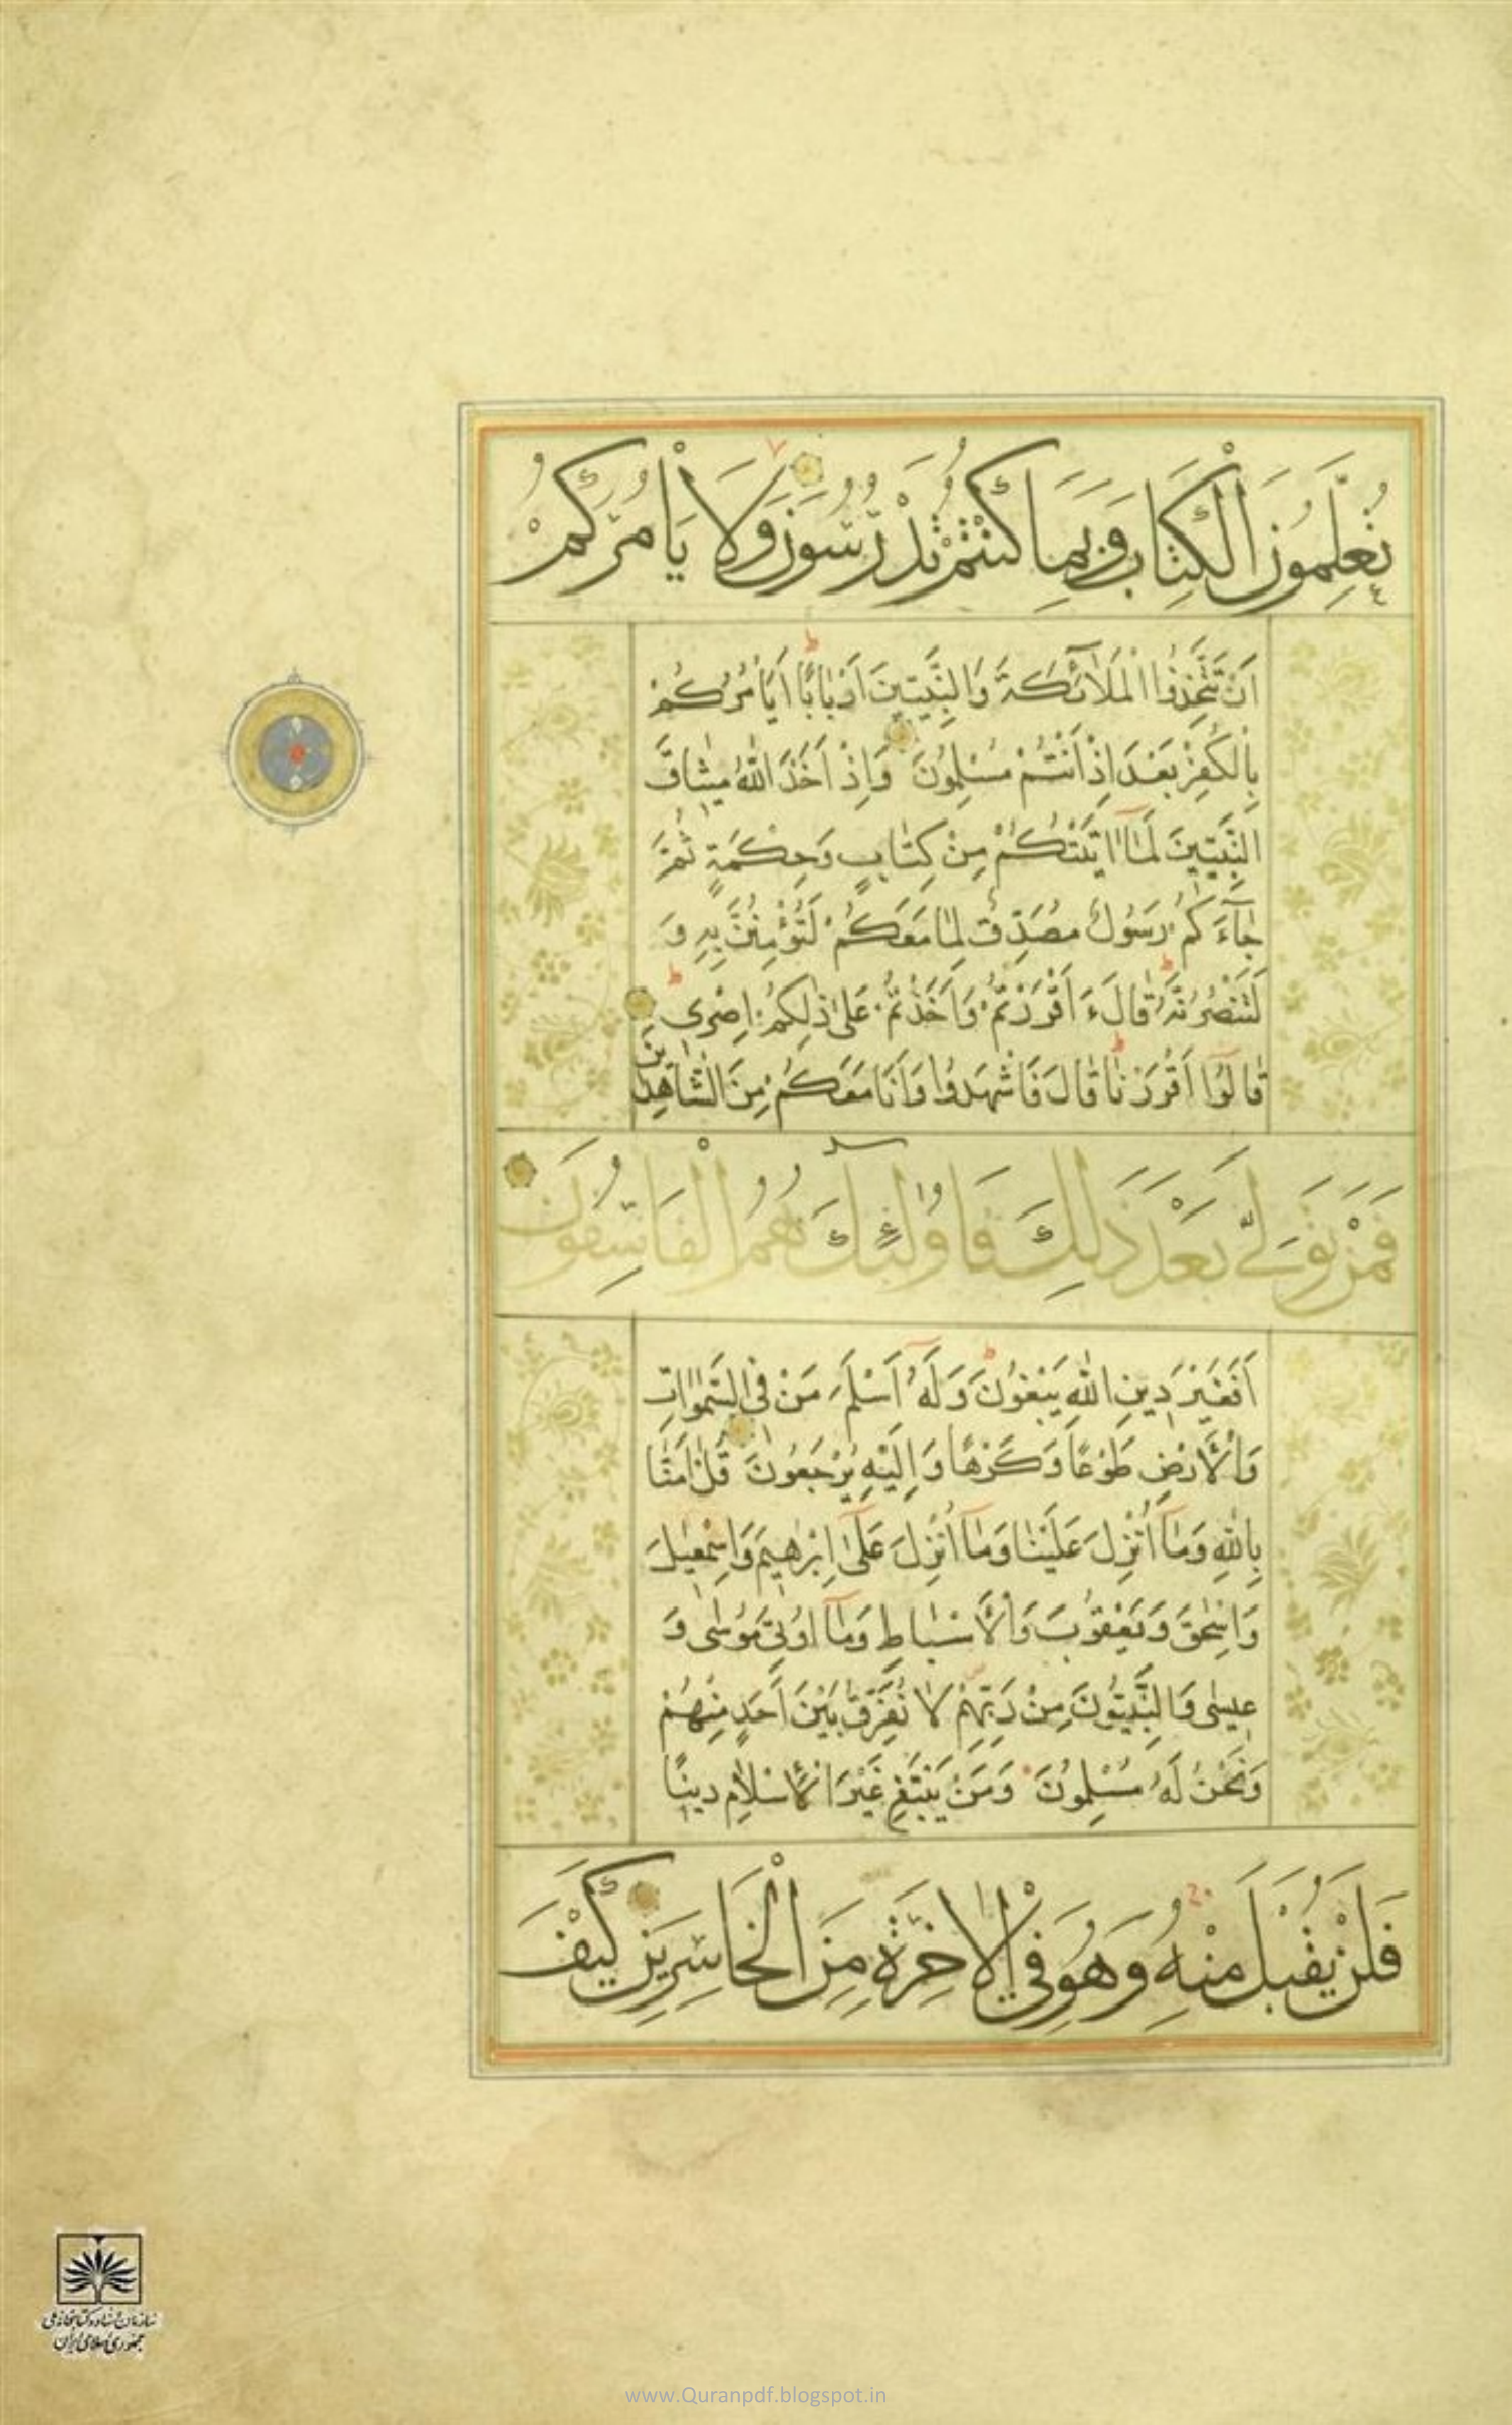 تُعَلِّمُونَ الْكِتَابَ وَبِمَا كُنْتُمْ تَدْرُسُونَ وَلَا يَأْمُرَكُمْ
اَنْ تَتَّخِذُوا الْمَلَائِكَةَ وَالنَّبِيِّينَ اَرْبَابًا اَيَأْمُرُكُمْ
بِالْكُفْرِ بَعْدَ اِذْ اَنْتُمْ مُسْلِمُونَ وَاِذْ اَخَذَ اللّٰهُ مِيثَاقَ
النَّبِيِّينَ لَمَآ اٰتَيْتُكُمْ مِنْ كِتَابٍ وَحِكْمَةٍ ثُمَّ
جَآءَكُمْ رَسُولٌ مُصَدِّقٌ لِمَا مَعَكُمْ لَتُؤْمِنُنَّ بِهِ وَ
لَتَنْصُرُنَّهُ قَالَ ءَاَقْرَرْتُمْ وَاَخَذْتُمْ عَلٰى ذٰلِكُمْ اِصْرِى
قَالُوٓا اَقْرَرْنَا قَالَ فَاشْهَدُوا وَاَنَا مَعَكُمْ مِنَ الشَّاهِدِينَ
فَمَنْ تَوَلّٰى بَعْدَ ذٰلِكَ فَاُولٰٓئِكَ هُمُ الْفَاسِقُونَ
اَفَغَيْرَ دِينِ اللّٰهِ يَبْغُونَ وَلَهُ اَسْلَمَ مَنْ فِى السَّمٰوَاتِ
وَالْاَرْضِ طَوْعًا وَكَرْهًا وَاِلَيْهِ يُرْجَعُونَ قُلْ اٰمَنَّا
بِاللّٰهِ وَمَآ اُنْزِلَ عَلَيْنَا وَمَآ اُنْزِلَ عَلٰٓى اِبْرٰهِيمَ وَاِسْمٰعِيلَ
وَاِسْحٰقَ وَيَعْقُوبَ وَالْاَسْبَاطِ وَمَآ اُوتِىَ مُوسٰى وَ
عِيسٰى وَالنَّبِيُّونَ مِنْ رَبِّهِمْ لَا نُفَرِّقُ بَيْنَ اَحَدٍ مِنْهُمْ
وَنَحْنُ لَهُ مُسْلِمُونَ وَمَنْ يَبْتَغِ غَيْرَ الْاِسْلَامِ دِينًا
فَلَنْ يُقْبَلَ مِنْهُ وَهُوَ فِى الْاٰخِرَةِ مِنَ الْخَاسِرِينَ كَيْفَ
سازمان اسناد و کتابخانه ملی
جمهوری اسلامی ایران
www.Quranpdf.blogspot.in